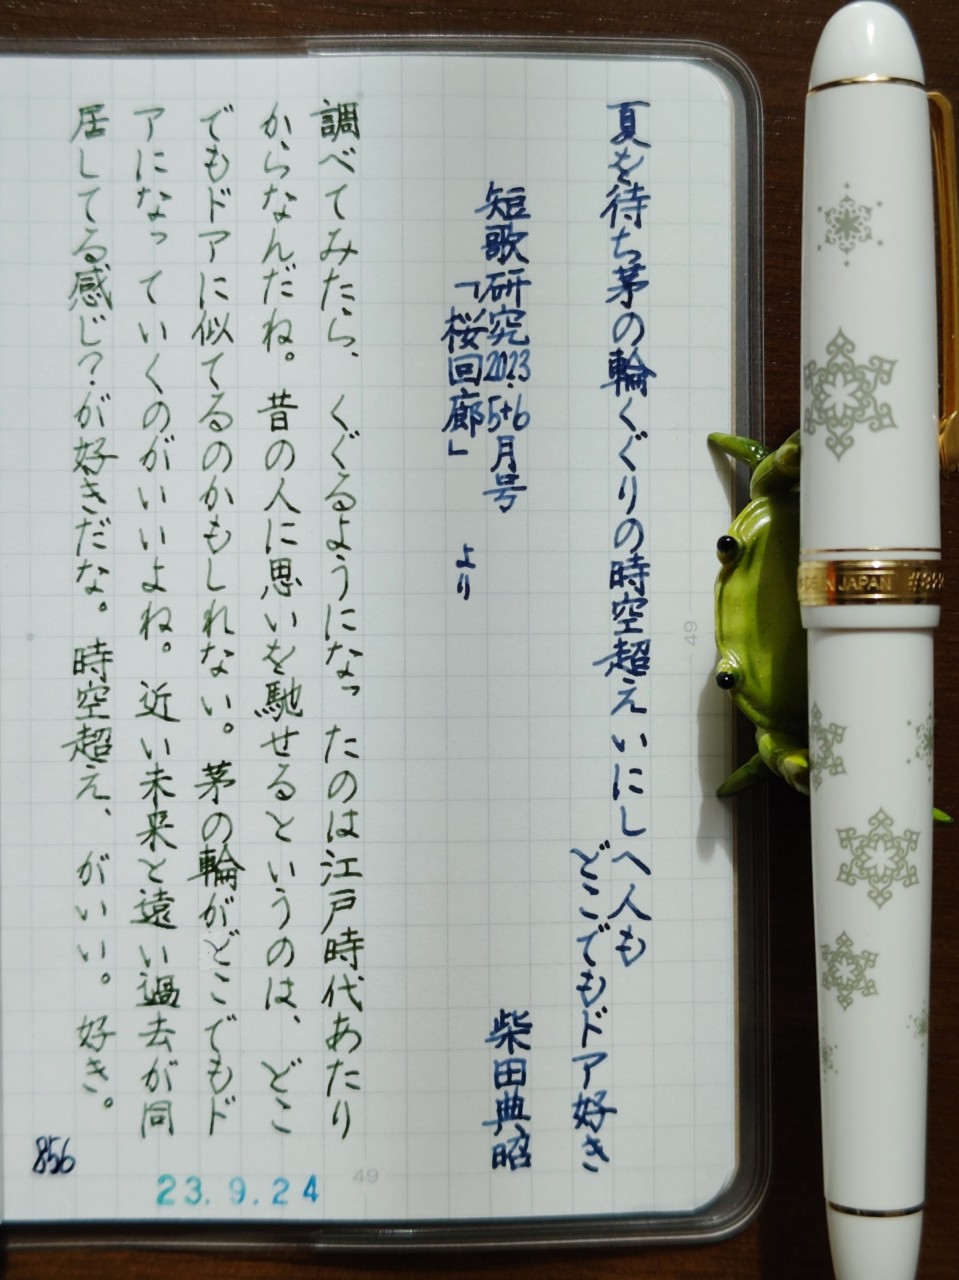 夏を待ち茅の輪くぐりの時空超えいにしへ人も
どこでもドア好き
柴田典昭
短歌研究2023.5+6月号
「桜回廊」
より
調べてみたら、くぐるようになったのは江戸時代あたり
からなんだね。昔の人に思いを馳せるというのは、どこ
でもドアに似てるのかもしれない。茅の輪がどこでもド
アになっていくのがいいよね。近い未来と遠い過去が同
居してる感じ?が好きだな。時空超え、がいい。好き。
856
23.9.24
49
49
IN JAPAN